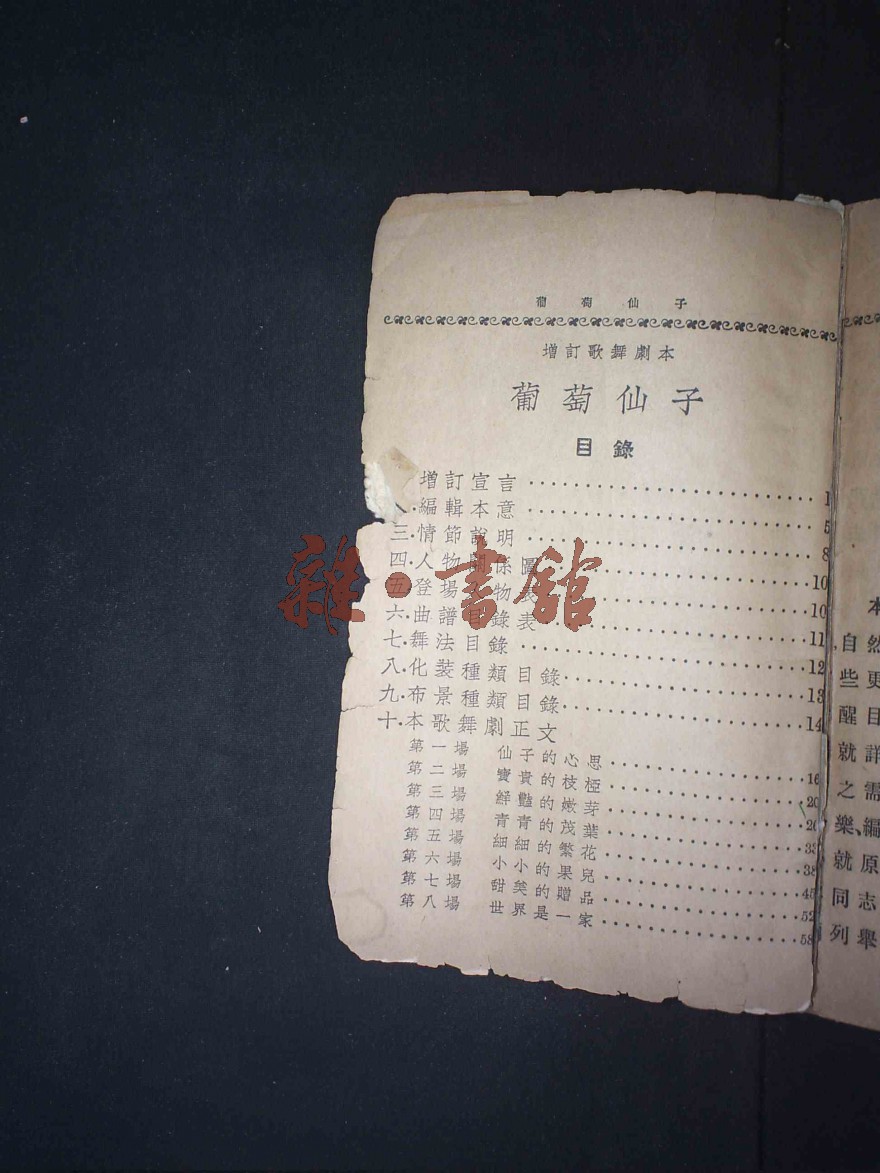 葡萄仙子
增訂歌舞劇本
葡萄仙子
目錄
增訂宣言 1
編輯本意 5
三.情節說明 8
四.人物關係圖 10
五.登場 物表 10
六.曲譜目錄表 11
七.舞法目錄 12
八.化裝種類目錄 13
九.布景種類目錄 14
十.本歌舞劇正文
第一場 仙子的心思 16
第二場 寶貴的枝椏 20
第三場 鮮豔的嫩芽 26
第四場 青青的茂葉 33
第五場 細細的繁花 38
第六場 小小的果兒 45
第七場 甜美的贈品 52
第八場 世界是一家 58
雜·書館
本
自然
些更
醒目
就詳
之需
樂,編
就原
同志
列舉